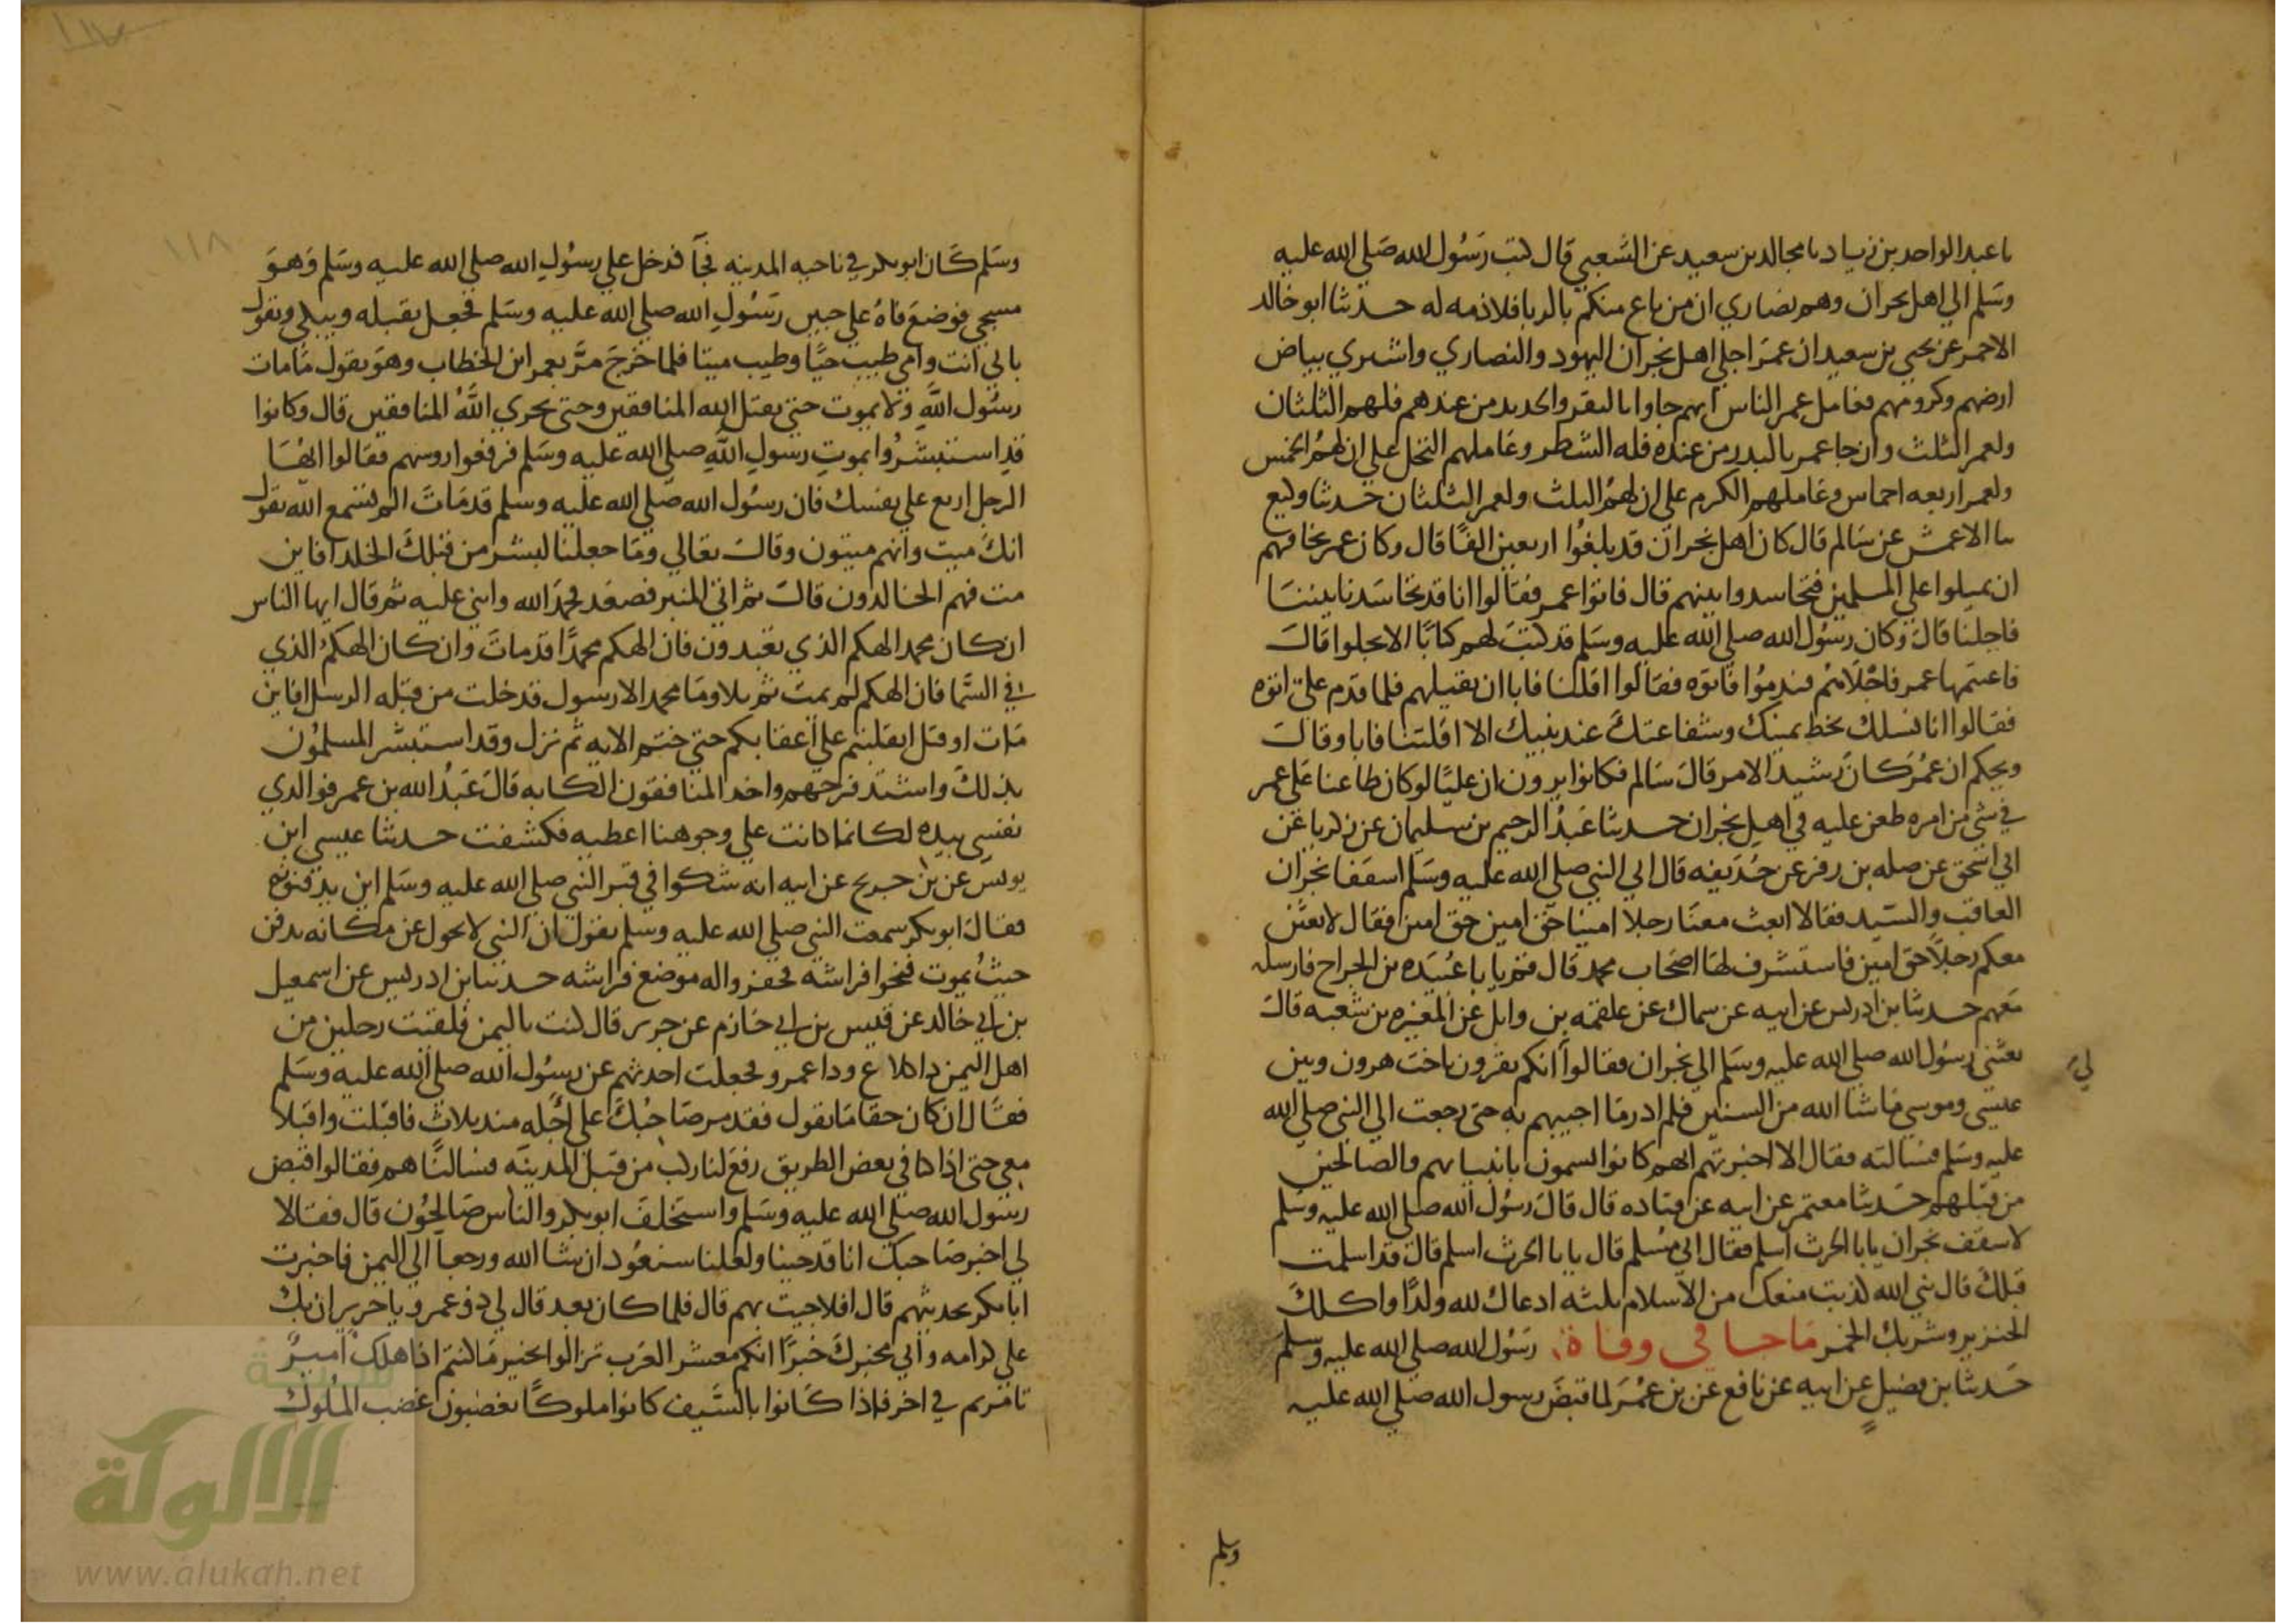 نا عبد الواحد بن زياد نا مجالد بن سعيد عن الشعبي قال كتب رسول الله صلي الله عليه
وسلم الي اهل نجران وهم نصاري ان من باع منكم بالربا فلا ذمه له حدثنا ابو خالد
الاحمر عن يحيي بن سعيد ان عمر اجلي اهل نجران اليهود والنصاري واشتري بياض
ارضهم وكرومهم فعامل عمر الناس ان هم جاوا بالبقر والحديد من عندهم فلهم الثلثان
ولعمر الثلث وان جا عمر بالبدر من عنده فله الشطر وعاملهم النخل علي ان لهم الخمس
ولعمر اربعه احماس وعاملهم الكرم علي ان لهم الثلث ولعمر الثلثان حدثنا وكيع
نا الاعمش عن سالم قال كان اهل نجران قد بلغوا اربعين الفا قال وكان عمر يخافهم
ان يميلوا علي المسلمين فتحاسدوا بينهم قال فاتوا عمر فقالوا انا قد تحاسدنا بيننا
فاجلنا قال وكان رسول الله صلي الله عليه وسلم قد كتب لهم كتابا الا يجلوا قال
فاغتنمها عمر فاجلاهم فندموا فاتوه فقالوا اقلنا فابا ان يقيلهم فلما قدم علي اتوه
فقالوا انا نسلك بخط يمينك وشفاعتك عند نبيك الا اقلتنا فابا وقال
ويحكم ان عمر كان رشيد الامر قال سالم فكانوا يرون ان عليا لو كان طاعنا علي عمر
في شي من امره طعن عليه في اهل نجران حدثنا عبد الرحيم بن سليمان عن زكريا عن
ابي اسحق عن صله بن زفر عن حذيفه قال اتي النبي صلي الله عليه وسلم اسقفا نجران
العاقب والسيد فقالا ابعث معنا رجلا امينا حق امين حق امين فقال لابعثن
معكم رجلا حق امين فاستشرف لها اصحاب محمد قال قم يا با عبيده بن الجراح فارسله
معهم حدثنا بن ادريس عن ابيه عن سماك عن علقمه بن وايل عن المغيره بن شعبه قال
بعثني رسول الله صلي الله عليه وسلم الي نجران فقالوا انكم تقرون ياخت هرون وبين
لي
عيسي وموسي ما شا الله من السنين فلم ادر ما اجيبهم به حتي رجعت الي النبي صلي الله
عليه وسلم فسالته فقال الا اخبرتهم انهم كانوا يسمون بانبيايهم والصالحين
من قبلهم حدثنا معتمر عن ابيه عن قتاده قال قال رسول الله صلي الله عليه وسلم
لاسقف نجران يابا الحرث اسلم فقال اني مسلم قال يابا الحرث اسلم قال قد اسلمت
قبلك قال نبي الله كذبت منعك من الاسلام ثلثه ادعاك لله ولدا واكلك
الخنزير وشربك الخمر ما جا في وفاة رسول الله صلي الله عليه وسلم
حدثنا بن فضيل عن ابيه عن نافع عن بن عمر لما قبض رسول الله صلي الله عليه
وسلم
١١٨
وسلم كان ابو بكر في ناحيه المدينه فجا فدخل علي رسول الله صلي الله عليه وسلم وهو
مسجي فوضع فاه علي جبين رسول الله صلي الله عليه وسلم فجعل يقبله ويبكي ويقول
بابي انت وامي طيب حيا وطيب ميتا فلما خرج مر بعمر ابن الخطاب وهو يقول ما مات
رسول الله ولا يموت حتي يقتل الله المنافقين وحتي يخزي الله المنافقين قال وكانوا
قد استبشروا بموت رسول الله صلي الله عليه وسلم فرفعوا روسهم فقالوا ايها
الرجل اربع علي نفسك فان رسول الله صلي الله عليه وسلم قد مات الم تسمع الله يقول
انك ميت وانهم ميتون وقال تعالي وما جعلنا لبشر من قبلك الخلد افاين
مت فهم الخالدون قال ثم اتي المنبر فصعد فحمد الله واثني عليه ثم قال ايها الناس
ان كان محمد الهكم الذي تعبدون فان الهكم محمدا قد مات وان كان الهكم الذي
في السما فان الهكم لم يمت ثم تلا وما محمد الا رسول قد خلت من قبله الرسل افاين
مات او قتل انقلبتم علي اعقابكم حتي ختم الايه ثم نزل وقد استبشر المسلمون
بذلك واشتد فرحهم واخذ المنافقون الكابه قال عبد الله بن عمر فوالذي
نفسي بيده لكانما كانت علي وجوهنا اغطيه فكشفت حدثنا عيسي ابن
يونس عن بن جريج عن ابيه انه شكوا في قبر النبي صلي الله عليه وسلم اين يدفنونه
فقال ابو بكر سمعت النبي صلي الله عليه وسلم يقول ان النبي لا يحول عن مكانه يدفن
حيث يموت فنحوا فراشه فحفروا له موضع فراشه حدثنا بن ادريس عن اسمعيل
بن ابي خالد عن قيس بن ابي حازم عن جرير قال كنت باليمن فلقيت رجلين من
اهل اليمن ذا كلاع وذا عمرو فجعلت احدثهم عن رسول الله صلي الله عليه وسلم
فقال ان كان حقا ما تقول فقد مر صاحبك علي اجله منذ ثلاث فاقبلت واقبلا
معي حتي اذا كنا في بعض الطريق رفع لنا ركب من قبل المدينه فسالناهم فقالوا قبض
رسول الله صلي الله عليه وسلم واستخلف ابو بكر والناس صالحون قال فقالا
لي اخبر صاحبك انا قد جينا ولعلنا سنعود ان شا الله ورجعا الي اليمن فاخبرت
ابا بكر بحديثهم قال افلا جيت بهم قال فلما كان بعد قال لي ذو عمرو يا جرير ان بك
علي كرامه واني مخبرك خبرا انكم معشر العرب تزالوا بخير ما كنتم اذا هلك امير
تامرتم في اخر فاذا كانوا بالسيف كانوا ملوكا يغضبون غضب الملوك
شبكة
الألوكة
www.alukah.net